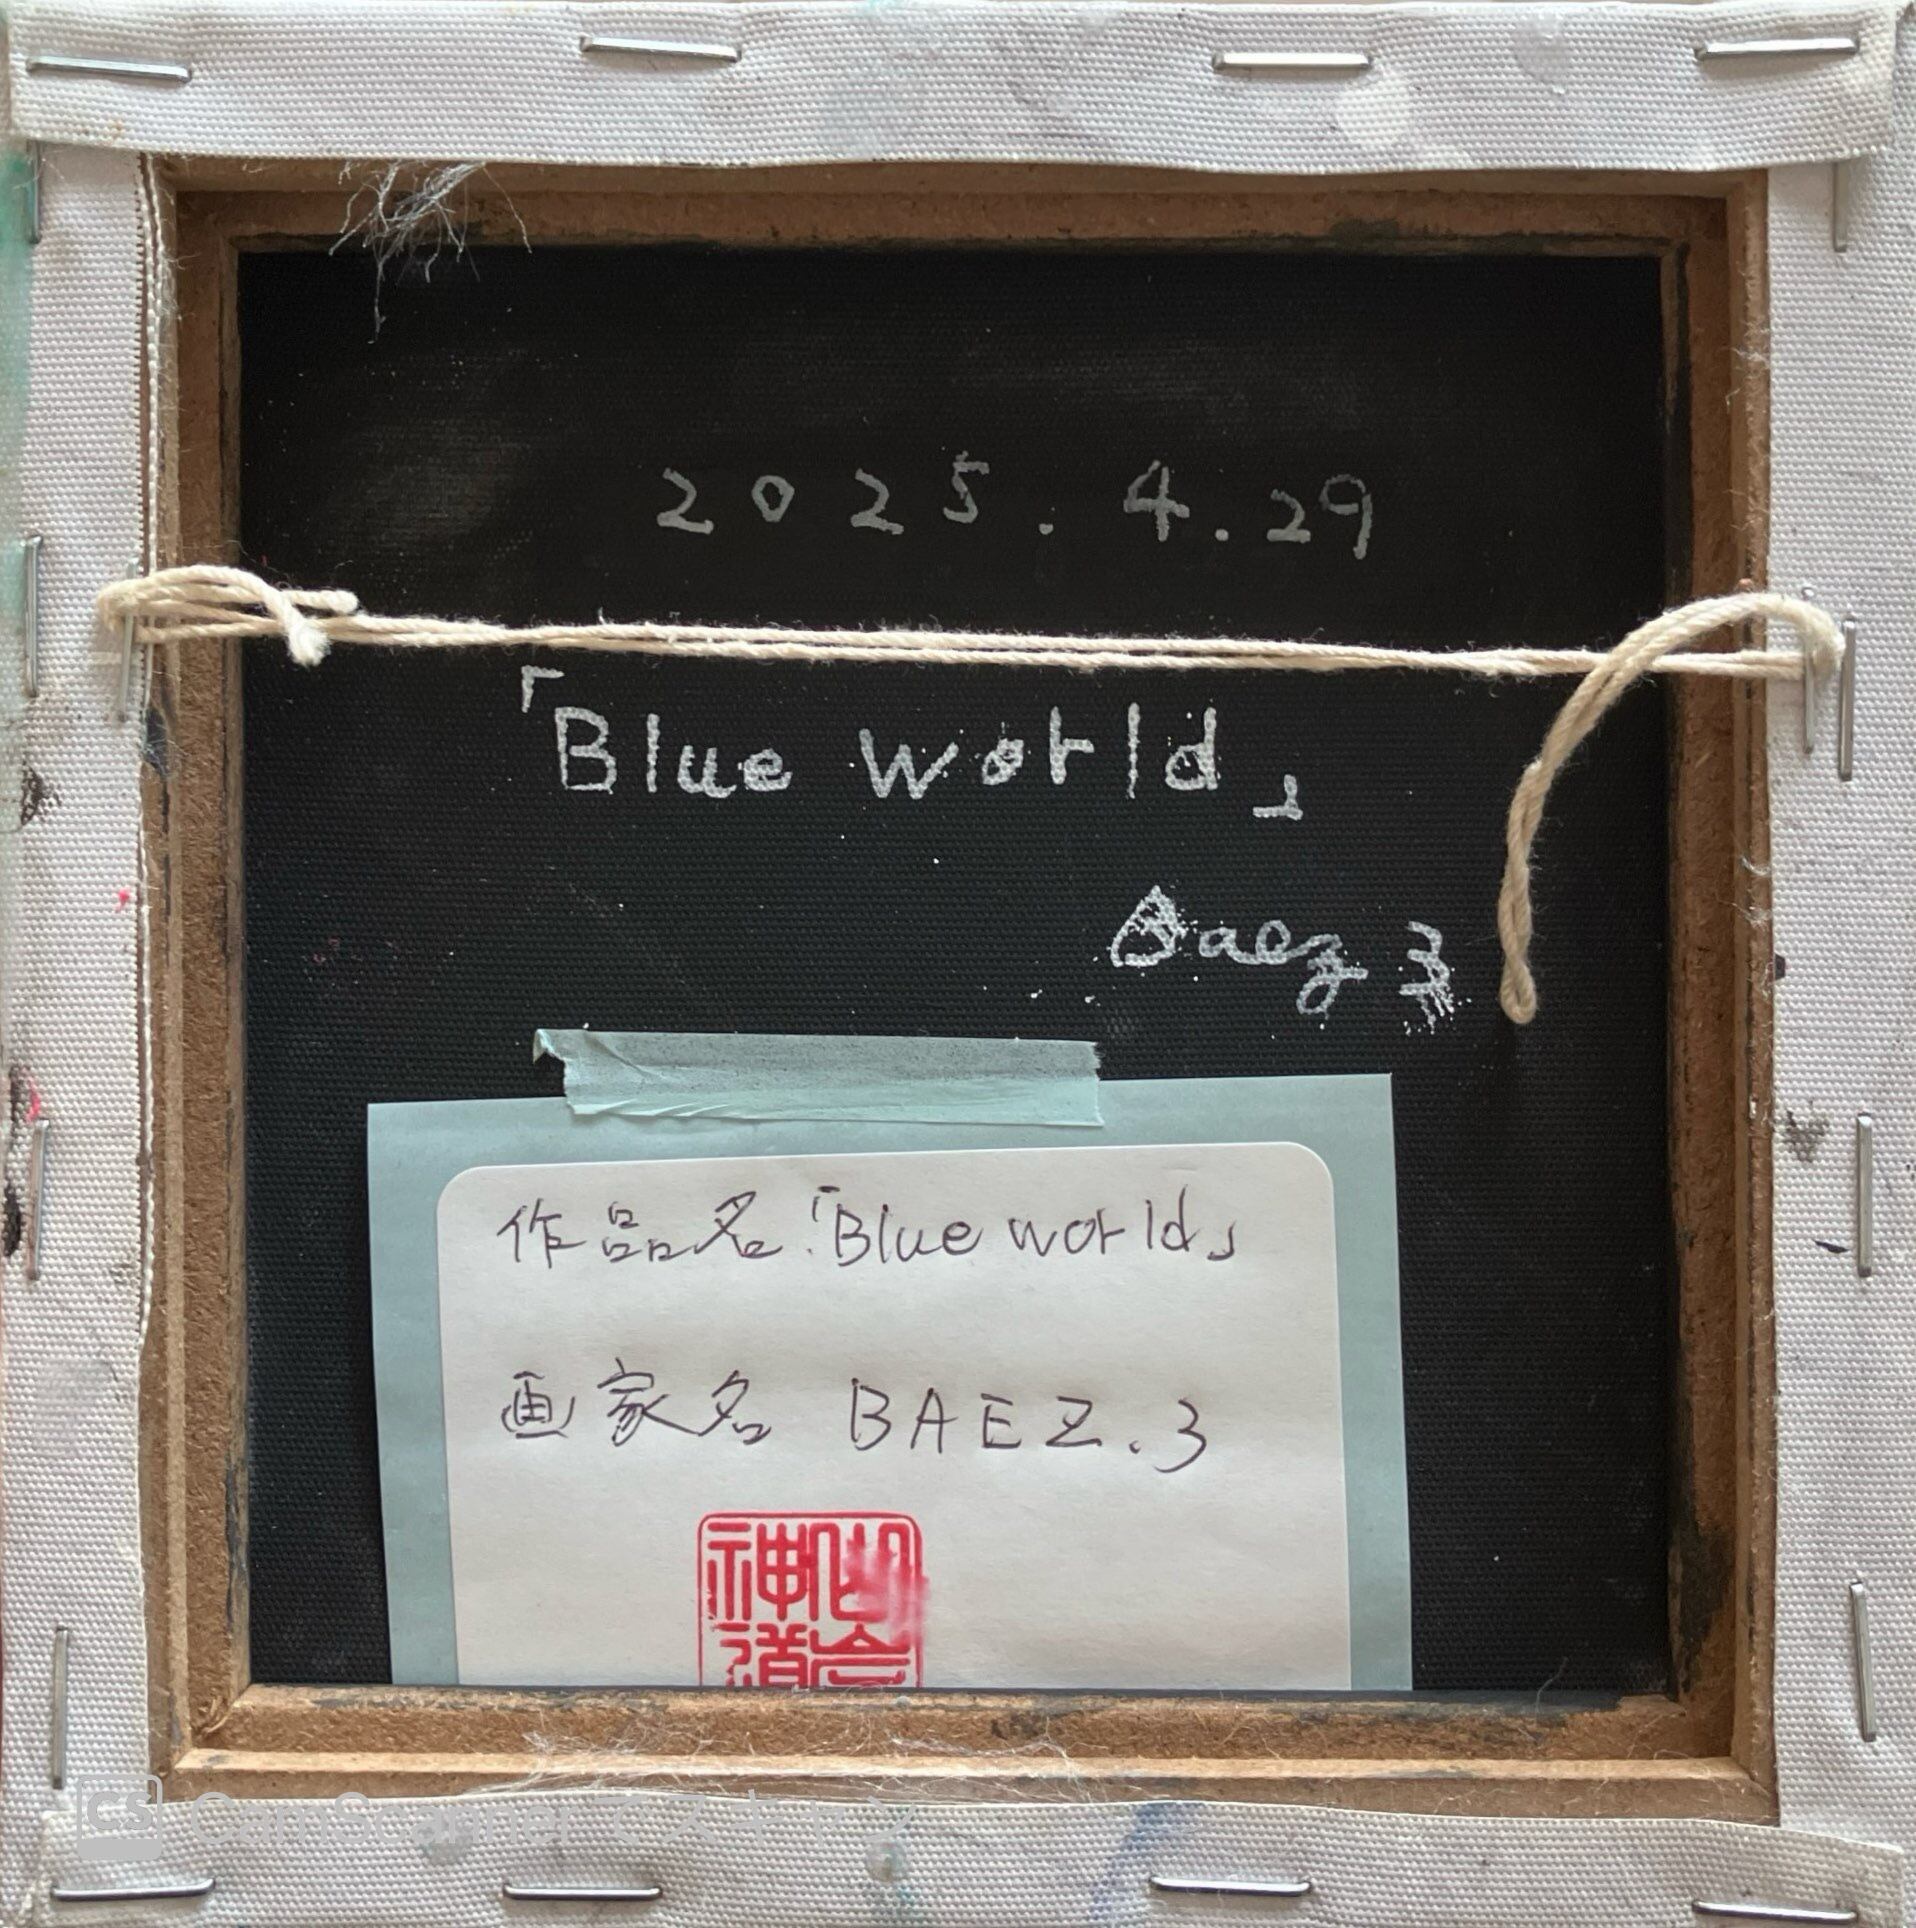 2025.4.29
「Blue world」
Baez 3
作品名「Blue world」
画家名 BAEZ.3
神
道
CS CamScannerでスキャン